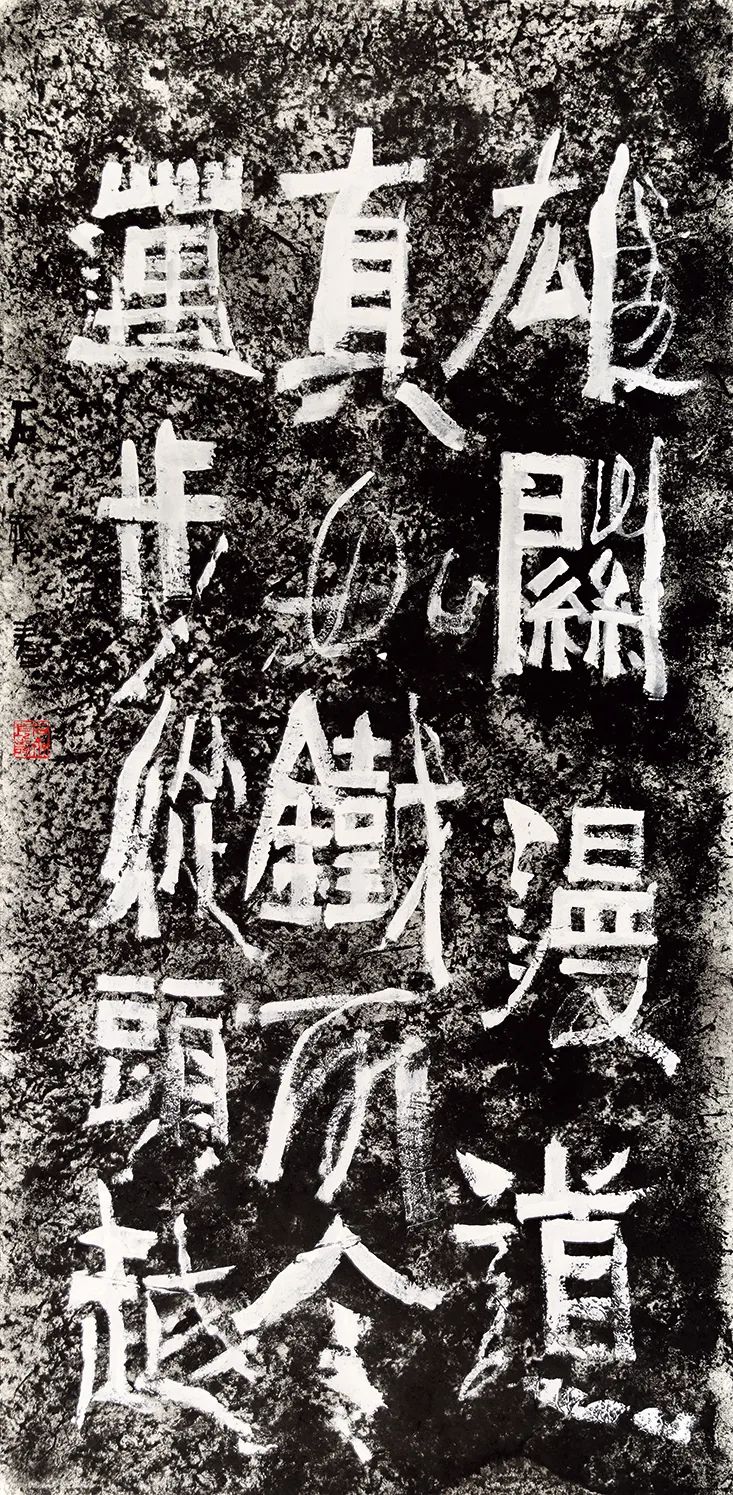 雄關漫道
真如鐵而今
邁步從頭越
石